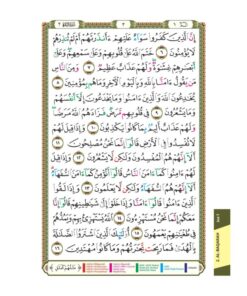 ٢
١
إِنَّ ٱلَّذِينَ كَفَرُوا۟ سَوَآءٌ عَلَيْهِمْ ءَأَنذَرْتَهُمْ أَمْ لَمْ تُنذِرْهُمْ
لَا يُؤْمِنُونَ ٦ خَتَمَ ٱللَّهُ عَلَىٰ قُلُوبِهِمْ وَعَلَىٰ سَمْعِهِمْ وَعَلَىٰٓ
أَبْصَٰرِهِمْ غِشَٰوَةٌ وَلَهُمْ عَذَابٌ عَظِيمٌ ٧ وَمِنَ ٱلنَّاسِ
مَن يَقُولُ ءَامَنَّا بِٱللَّهِ وَبِٱلْيَوْمِ ٱلْءَاخِرِ وَمَا هُم بِمُؤْمِنِينَ ٨
يُخَٰدِعُونَ ٱللَّهَ وَٱلَّذِينَ ءَامَنُوا۟ وَمَا يَخْدَعُونَ إِلَّآ أَنفُسَهُمْ
وَمَا يَشْعُرُونَ ٩ فِى قُلُوبِهِم مَّرَضٌ فَزَادَهُمُ ٱللَّهُ مَرَضًا
وَلَهُمْ عَذَابٌ أَلِيمٌۢ بِمَا كَانُوا۟ يَكْذِبُونَ ١٠ وَإِذَا قِيلَ لَهُمْ
لَا تُفْسِدُوا۟ فِى ٱلْأَرْضِ قَالُوٓا۟ إِنَّمَا نَحْنُ مُصْلِحُونَ ١١
أَلَآ إِنَّهُمْ هُمُ ٱلْمُفْسِدُونَ وَلَٰكِن لَّا يَشْعُرُونَ ١٢ وَإِذَا قِيلَ
لَهُمْ ءَامِنُوا۟ كَمَآ ءَامَنَ ٱلنَّاسُ قَالُوٓا۟ أَنُؤْمِنُ كَمَآ ءَامَنَ ٱلسُّفَهَآءُ
أَلَآ إِنَّهُمْ هُمُ ٱلسُّفَهَآءُ وَلَٰكِن لَّا يَعْلَمُونَ ١٣ وَإِذَا لَقُوا۟
ٱلَّذِينَ ءَامَنُوا۟ قَالُوٓا۟ ءَامَنَّا وَإِذَا خَلَوْا۟ إِلَىٰ شَيَٰطِينِهِمْ قَالُوٓا۟ إِنَّا
مَعَكُمْ إِنَّمَا نَحْنُ مُسْتَهْزِءُونَ ١٤ ٱللَّهُ يَسْتَهْزِئُ بِهِمْ وَيَمُدُّهُمْ
فِى طُغْيَٰنِهِمْ يَعْمَهُونَ ١٥ أُو۟لَٰٓئِكَ ٱلَّذِينَ ٱشْتَرَوُا۟ ٱلضَّلَٰلَةَ
بِٱلْهُدَىٰ فَمَا رَبِحَت تِّجَٰرَتُهُمْ وَمَا كَانُوا۟ مُهْتَدِينَ ١٦
2. AL-BAQARAH
Juz 1